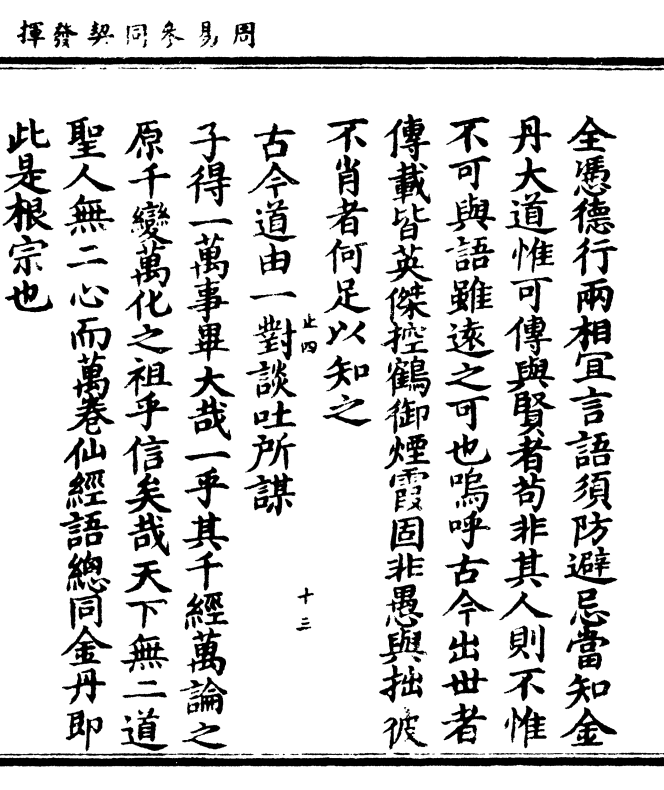 周易參同契發揮
全憑德行兩相宜言語須防避忌當知金
丹大道惟可傳與賢者苟非其人則不惟
不可與語雖遠之可也嗚呼古今出世者
傳載皆英傑控鶴御煙霞固非愚與拙彼
不肖者何足以知之
止四
十三
古今道由一對談吐所謀
子得一萬事畢大哉一乎其千經萬論之
原千變萬化之祖乎信矣哉天下無二道
聖人無二心而萬卷仙經語總同金丹即
此是根宗也